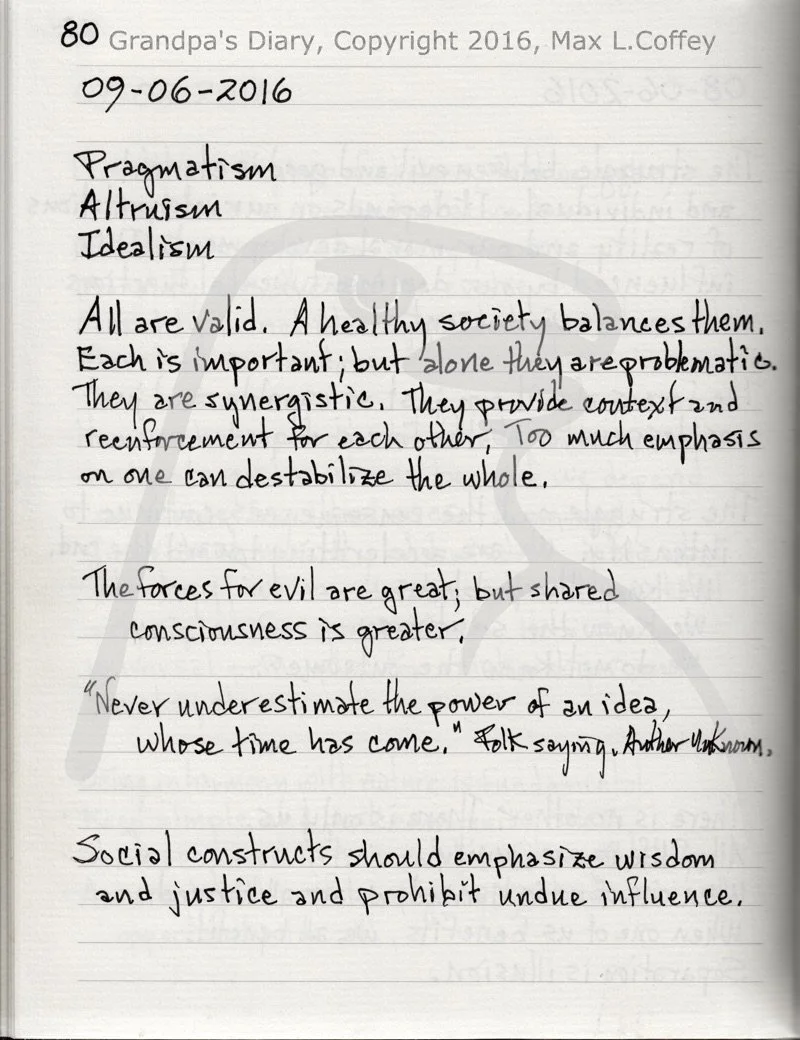 80 Grandpa's Diary, Copyright 2016, Max L.Coffey
09-06-2016
Pragmatism
Altruism
Idealism
All are valid. A healthy society balances them.
Each is important; but alone they are problematic.
They are synergistic. They provide context and
reenforcement for each other. Too much emphasis
on one can destabilize the whole.
The forces for evil are great; but shared
consciousness is greater.
"Never underestimate the power of an idea,
whose time has come." Folk saying. Author Unknown.
Social constructs should emphasize wisdom
and justice and prohibit undue influence.